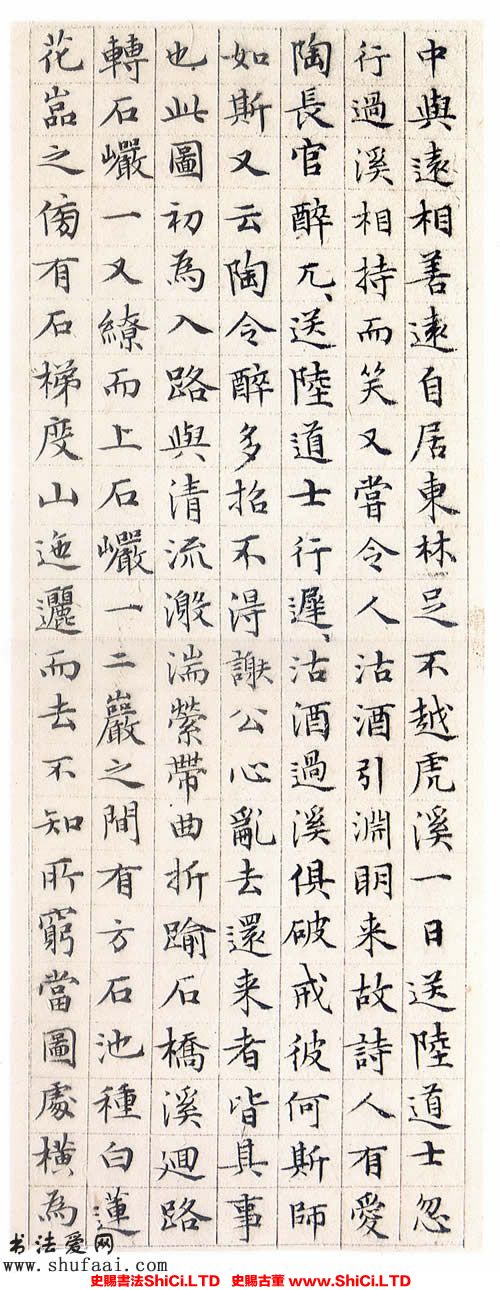 中與遠相善遠自居東林足不越虎溪一日送陸道士忽
行過溪相持而笑又嘗令人沽酒引淵明来故詩人有愛
陶長官醉兀、送陸道士行遲、沽酒過溪俱破戒彼何斯師
如斯又云陶令醉多招不得謝公心亂去還来者皆其事
也此圖初為入路與清流激湍縈帶曲折踰石橋溪廻路
轉石巖一又繚而上石巖一二巖之間有方石池種白蓮
花嵓之傍有石梯度山迤邐而去不知所窮當圖處横為
书法爱网
www.shufaai.com
史賜書法ShiCi.LTD 史賜古董 www.ShiCi.LTD